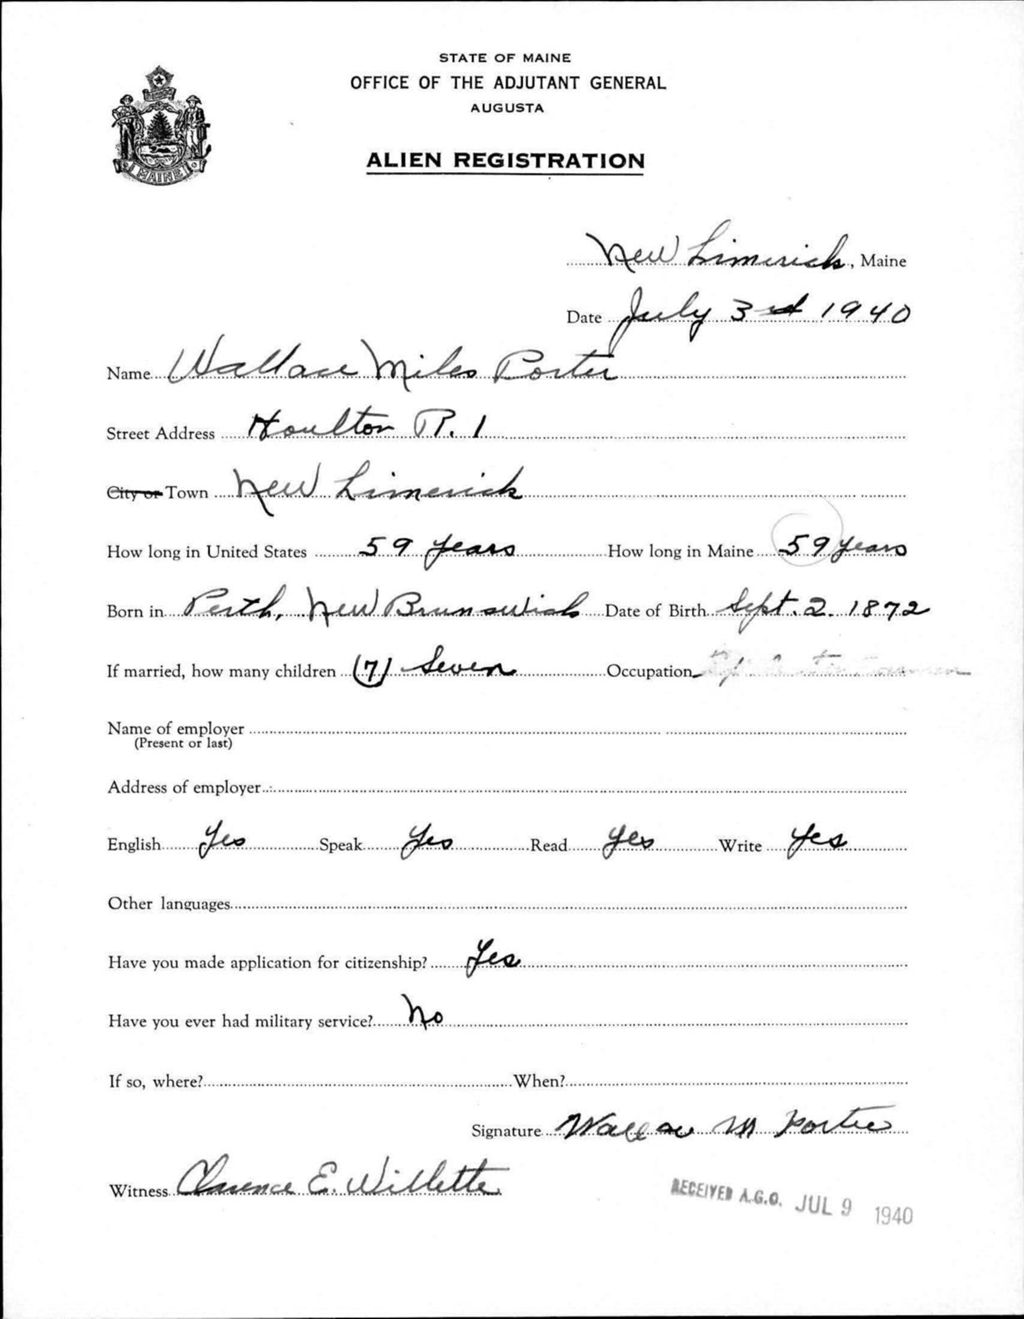 STATE OF MAINE
OFFICE OF THE ADJUTANT GENERAL
AUGUSTA
ALIEN REGISTRATION
MAINE
New Limerick, Maine
Date July 3rd 1940
Name Wallace Miles Porter
Street Address Houlton R. 1
City or Town New Limerick
How long in United States 59 years How long in Maine 59 years
Born in Perth, New Brunswick Date of Birth Sept. 2. 1872
If married, how many children (7) Seven Occupation
Name of employer
(Present or last)
Address of employer
English Yes Speak Yes Read Yes Write Yes
Other languages
Have you made application for citizenship? Yes
Have you ever had military service? No
If so, where? When?
Signature Wallace M Porter
Witness Clarence E. Willette
RECEIVED A.G.O. JUL 9 1940